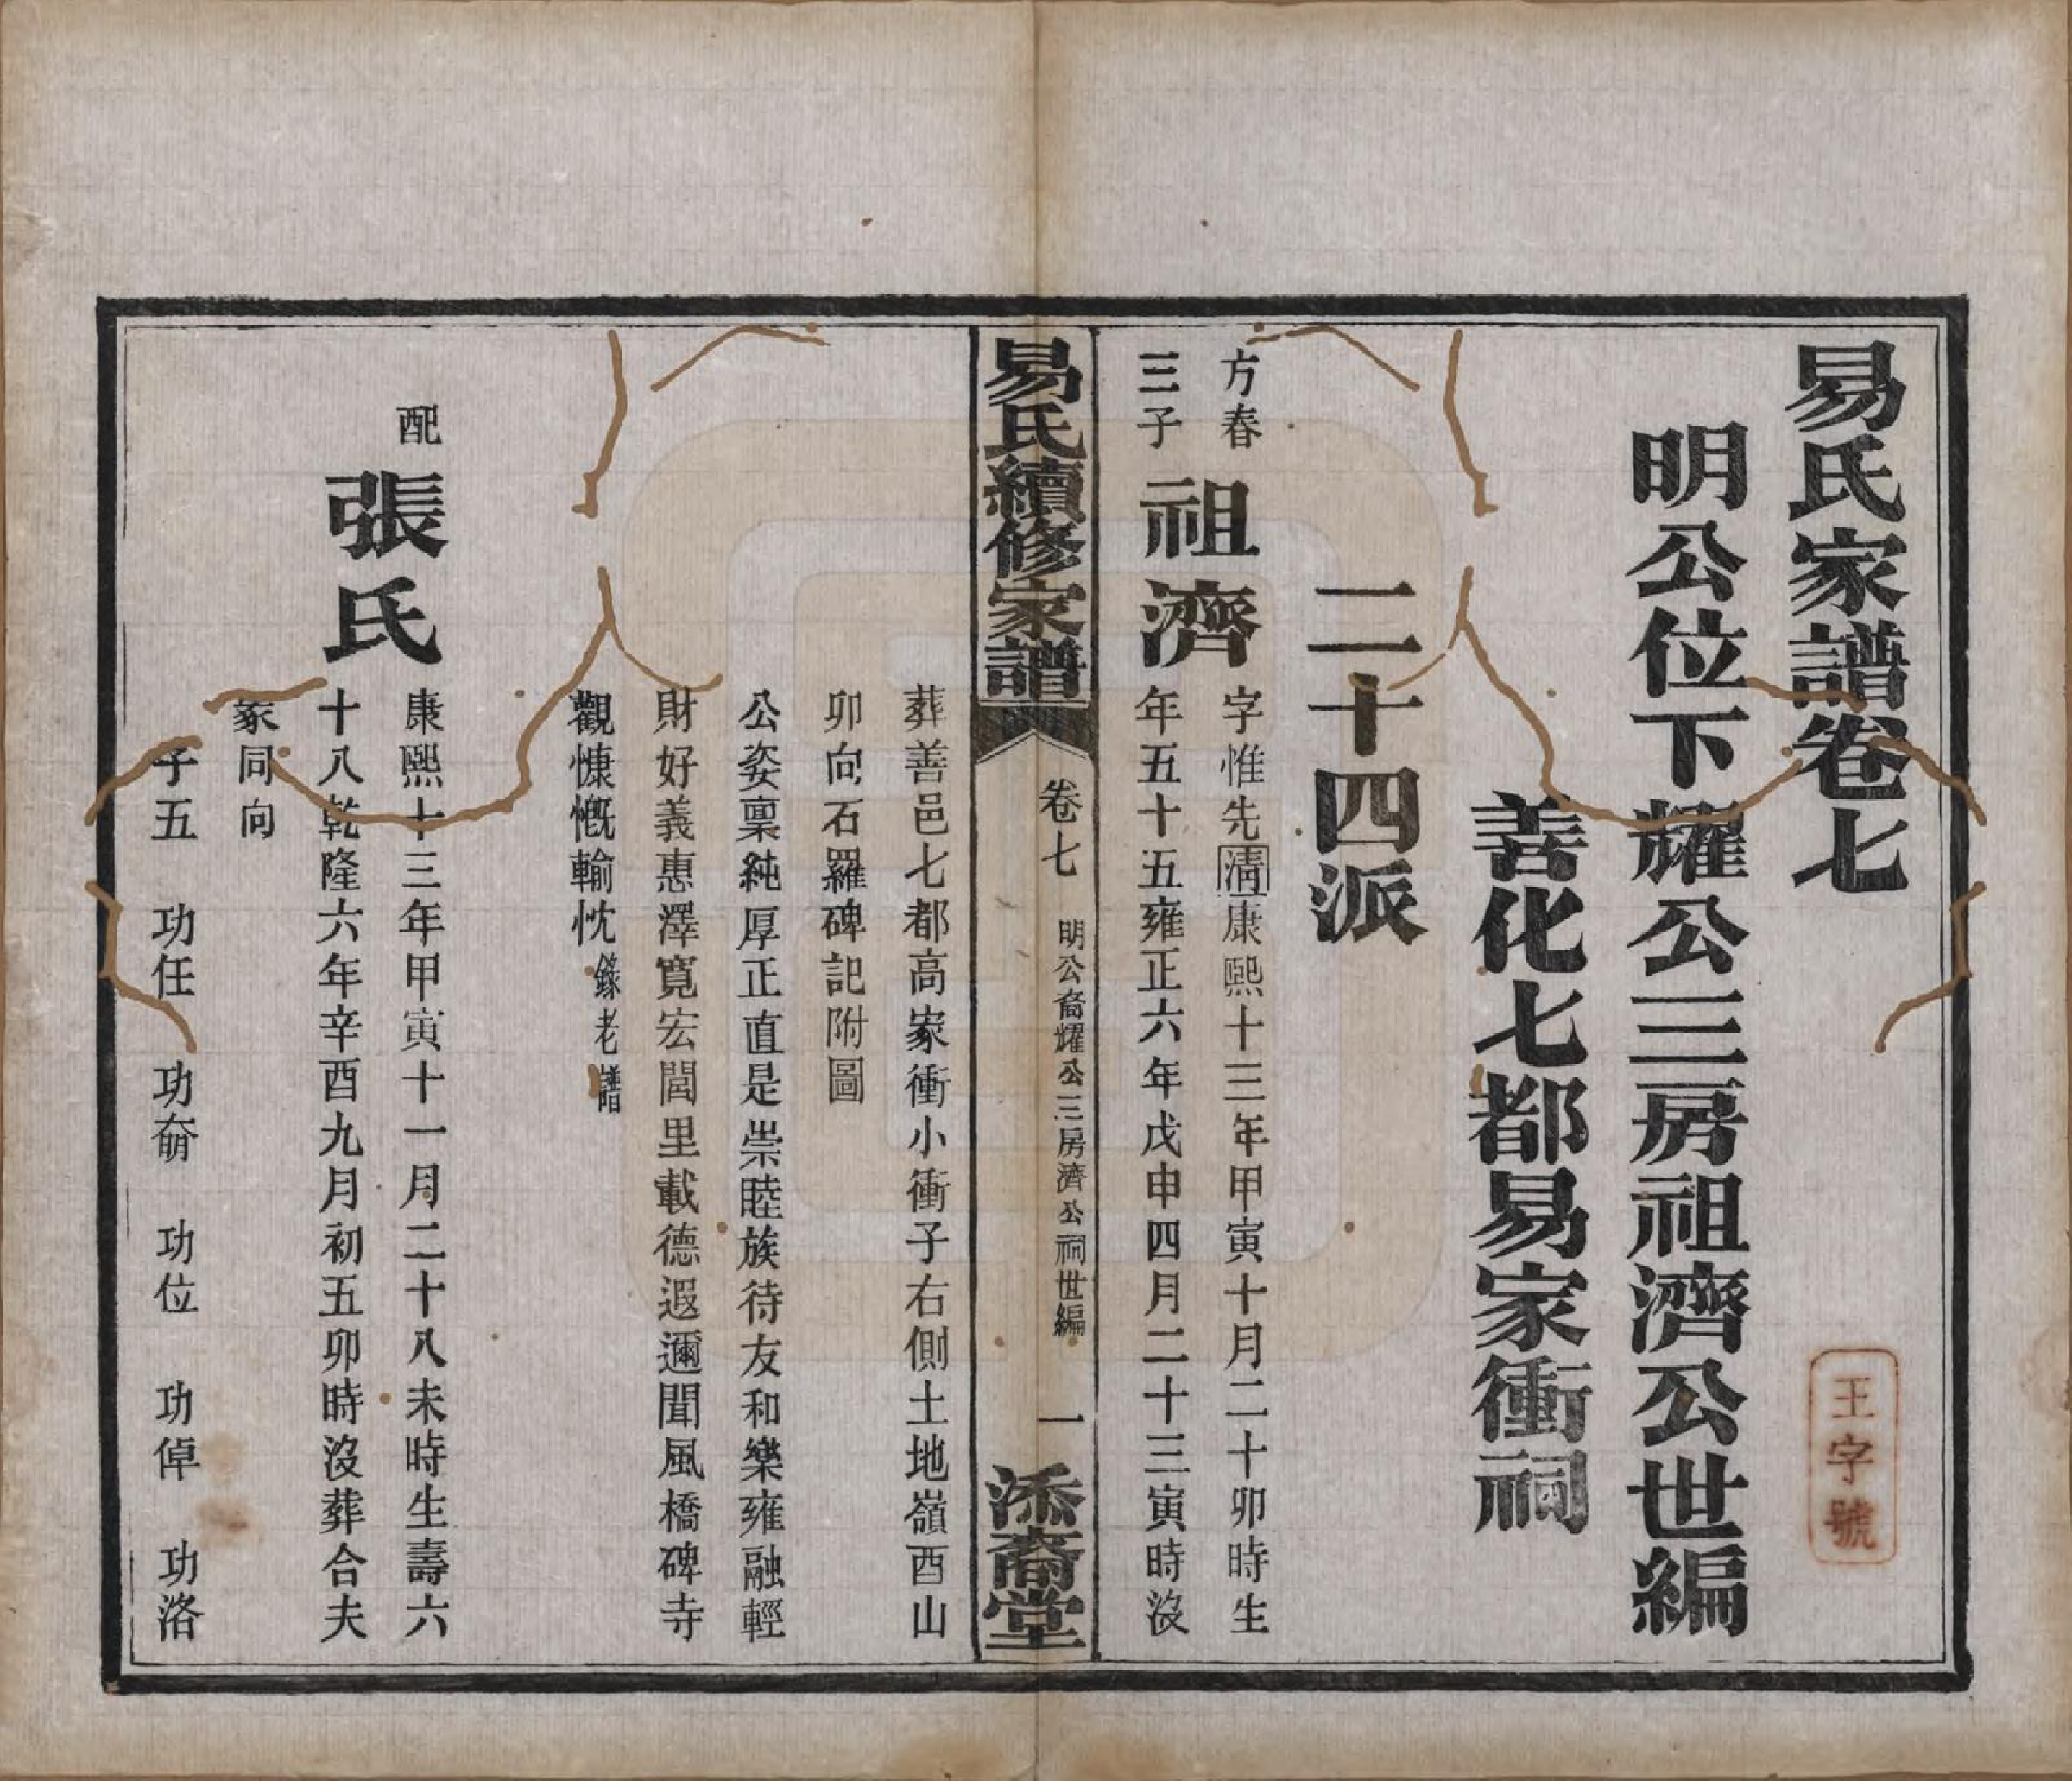 易氏家譜卷七
王字號
明公位下耀公三房祖濟公世編
善化七都易家衝祠
二十四派
方春
三子
祖濟
字惟先清康熙十三年甲寅十月二十卯時生
年五十五雍正六年戊申四月二十三寅時沒
易氏續修家譜
卷七
明公裔耀公三房濟公祠世編
一
添裔堂
葬善邑七都高家衝小衝子右側土地嶺酉山
卯向石羅碑記附圖
公姿稟純厚正直是崇睦族待友和樂雍融輕
財好義惠澤寬宏閭里載德遐邇聞風橋碑寺
觀慷慨輸忱錄老譜
配
張氏
康熙十三年甲寅十一月二十八未時生壽六
十八乾隆六年辛酉九月初五卯時沒葬合夫
冢同向
子五 功任 功奫 功位 功倬 功洛